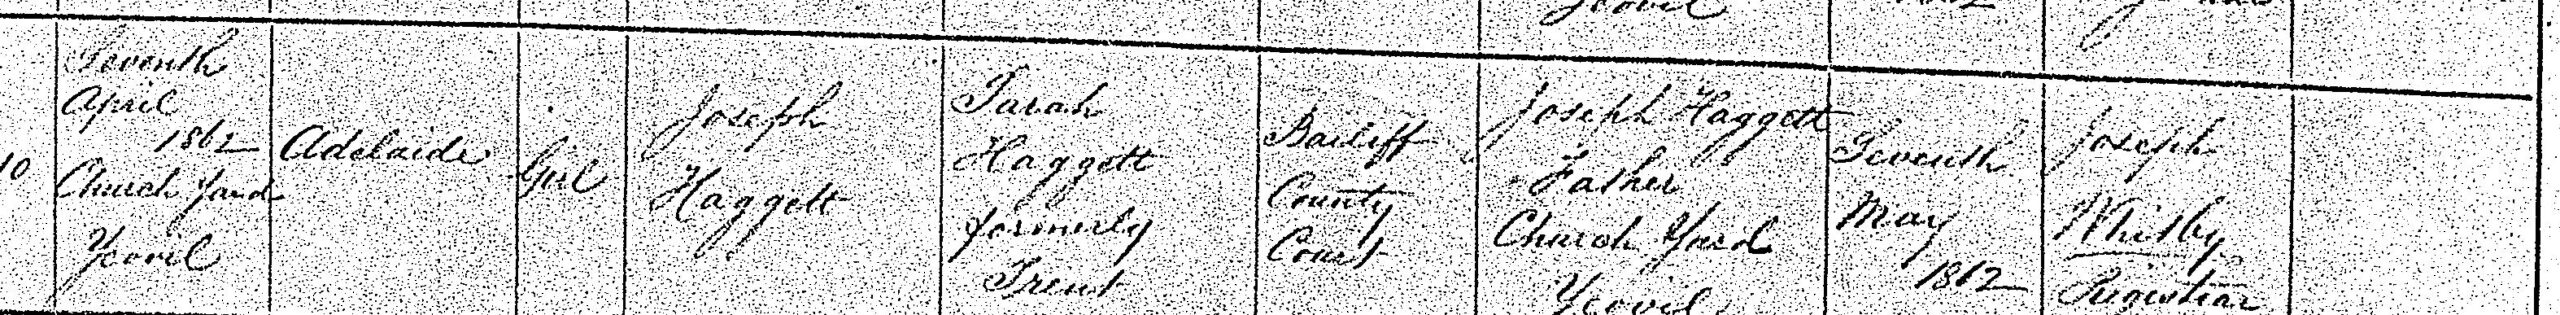 10
Seventh
April
1862
Church Yard
Yeovil
Adelaide
Girl
Joseph
Haggett
Sarah
Haggett
formerly
Trent
Bailiff
County
Court
Joseph Haggett
Father
Church Yard
Yeovil
Seventh
May
1862
Joseph
Whitby
Registrar